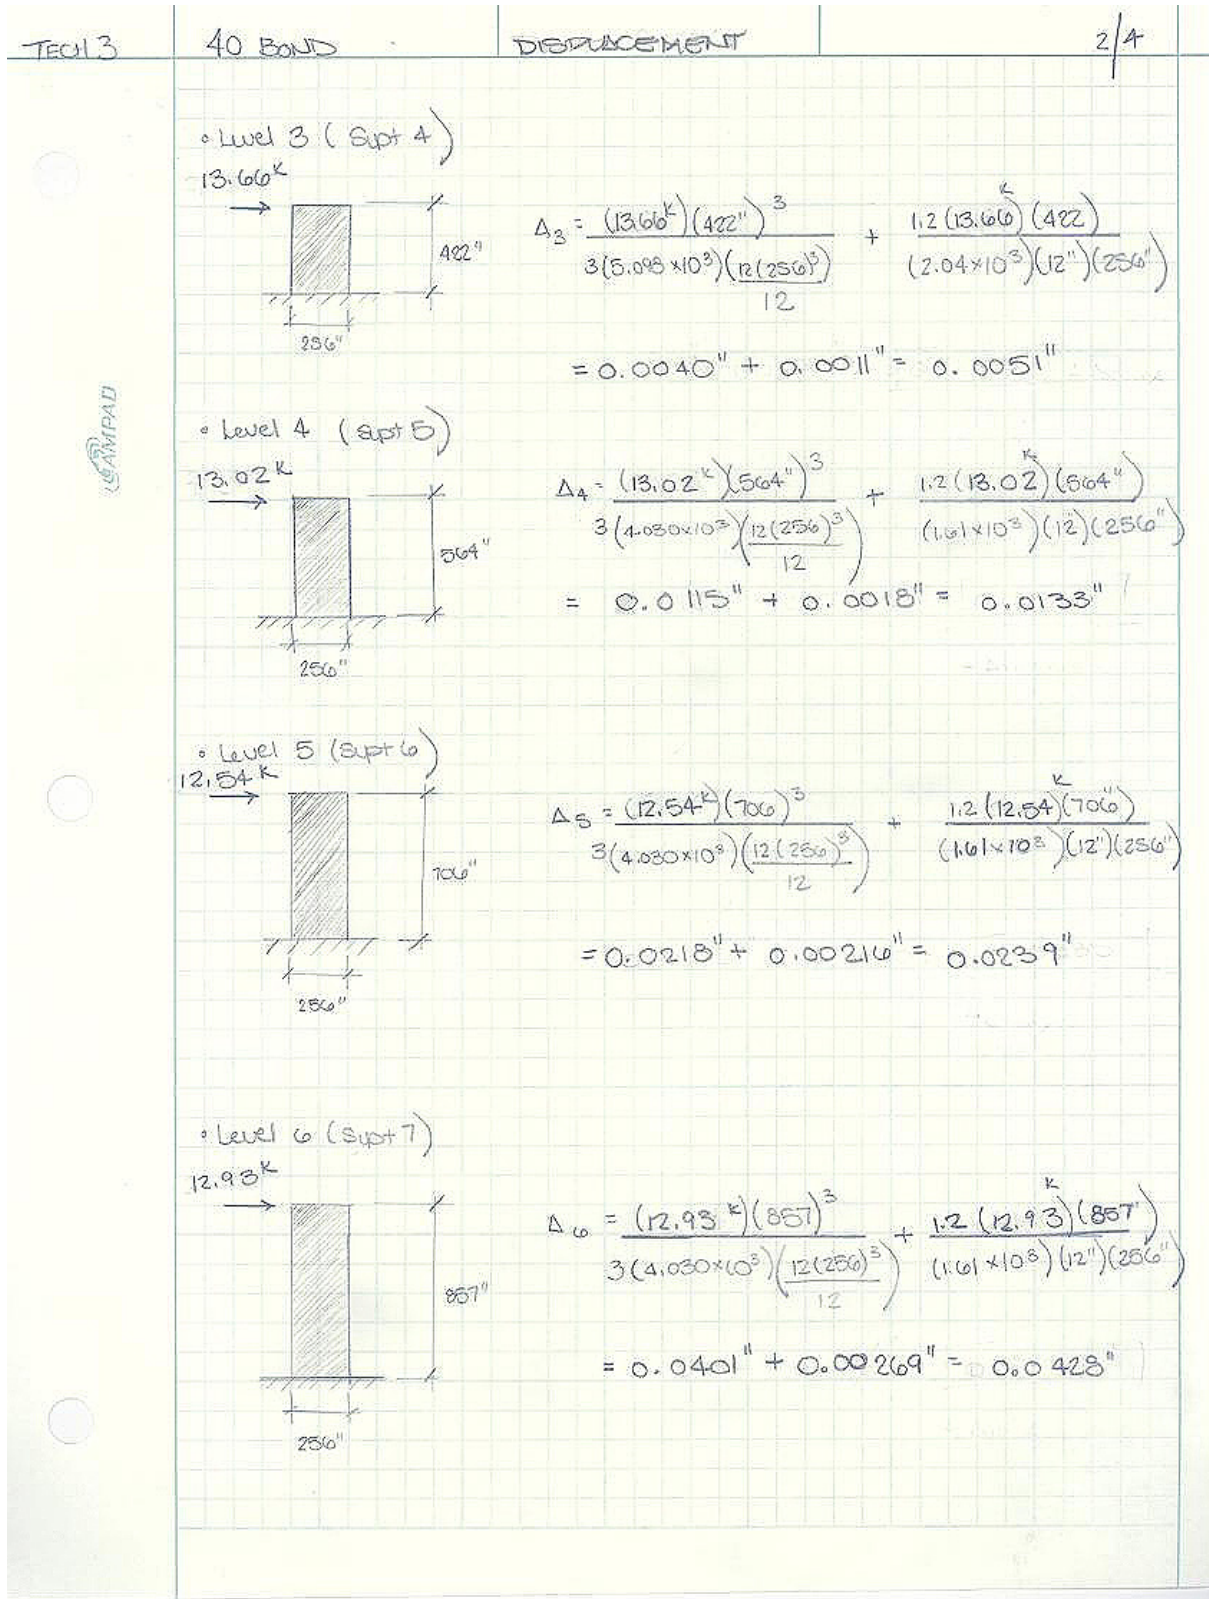 TECH 3 40 BOND DISPLACEMENT 2/4
• Level 3 (Supt 4)
13.66K
422"
256"
Δ3 = (13.66K)(422")³ / 3(5.098×10³)(12(256)³/12) + 1.2(13.66K)(422) / (2.04×10³)(12")(256")
= 0.0040" + 0.0011" = 0.0051"
AMPAD
• Level 4 (Supt 5)
13.02K
564"
256"
Δ4 = (13.02K)(564")³ / 3(4.030×10³)(12(256)³/12) + 1.2(13.02K)(564") / (1.61×10³)(12)(256")
= 0.0115" + 0.0018" = 0.0133"
• Level 5 (Supt 6)
12.54K
706"
256"
Δ5 = (12.54K)(706)³ / 3(4.030×10³)(12(256)³/12) + 1.2(12.54K)(706") / (1.61×10³)(12")(256")
= 0.0218" + 0.00216" = 0.0239"
• Level 6 (Supt 7)
12.93K
857"
256"
Δ6 = (12.93K)(857)³ / 3(4.030×10³)(12(256)³/12) + 1.2(12.93K)(857") / (1.61×10³)(12")(256")
= 0.0401" + 0.00269" = 0.0428"